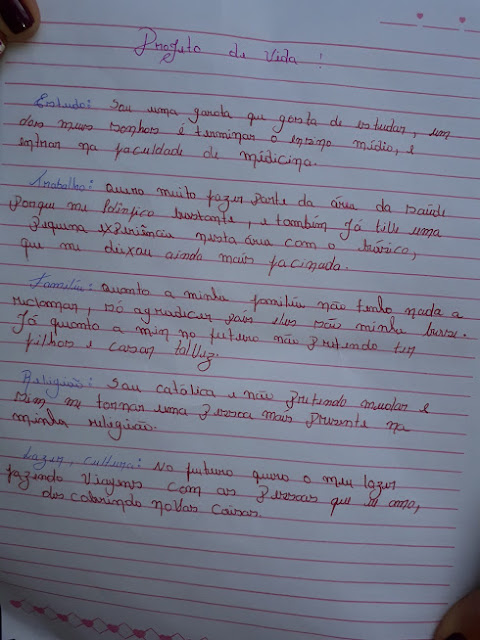 Projeto de Vida:
Estudo: Sou uma garota que gosta de estudar, um
dos meus sonhos é terminar o ensino médio, e
entrar na faculdade de médicina.
Trabalho: Quero muito fazer parte da área da saúde
porque me bastante, e também já tive uma
pequena experiência nesta área com o
que me deixou ainda mais facinada.
Família: Quanto a minha família não tenho nada a
reclamar, só agradicer pois eles são minha base.
Já quanto a mim no futuro não pretendo ter
filhos e casar talvez.
Religião: Sou católica e não pretendo mudar e
sim me tornar uma pessoa mais presente na
minha religião.
Lazer, cultura: No futuro quero o meu lazer
fazendo viagens com as pessoas que amo,
descobrindo novas coisas.